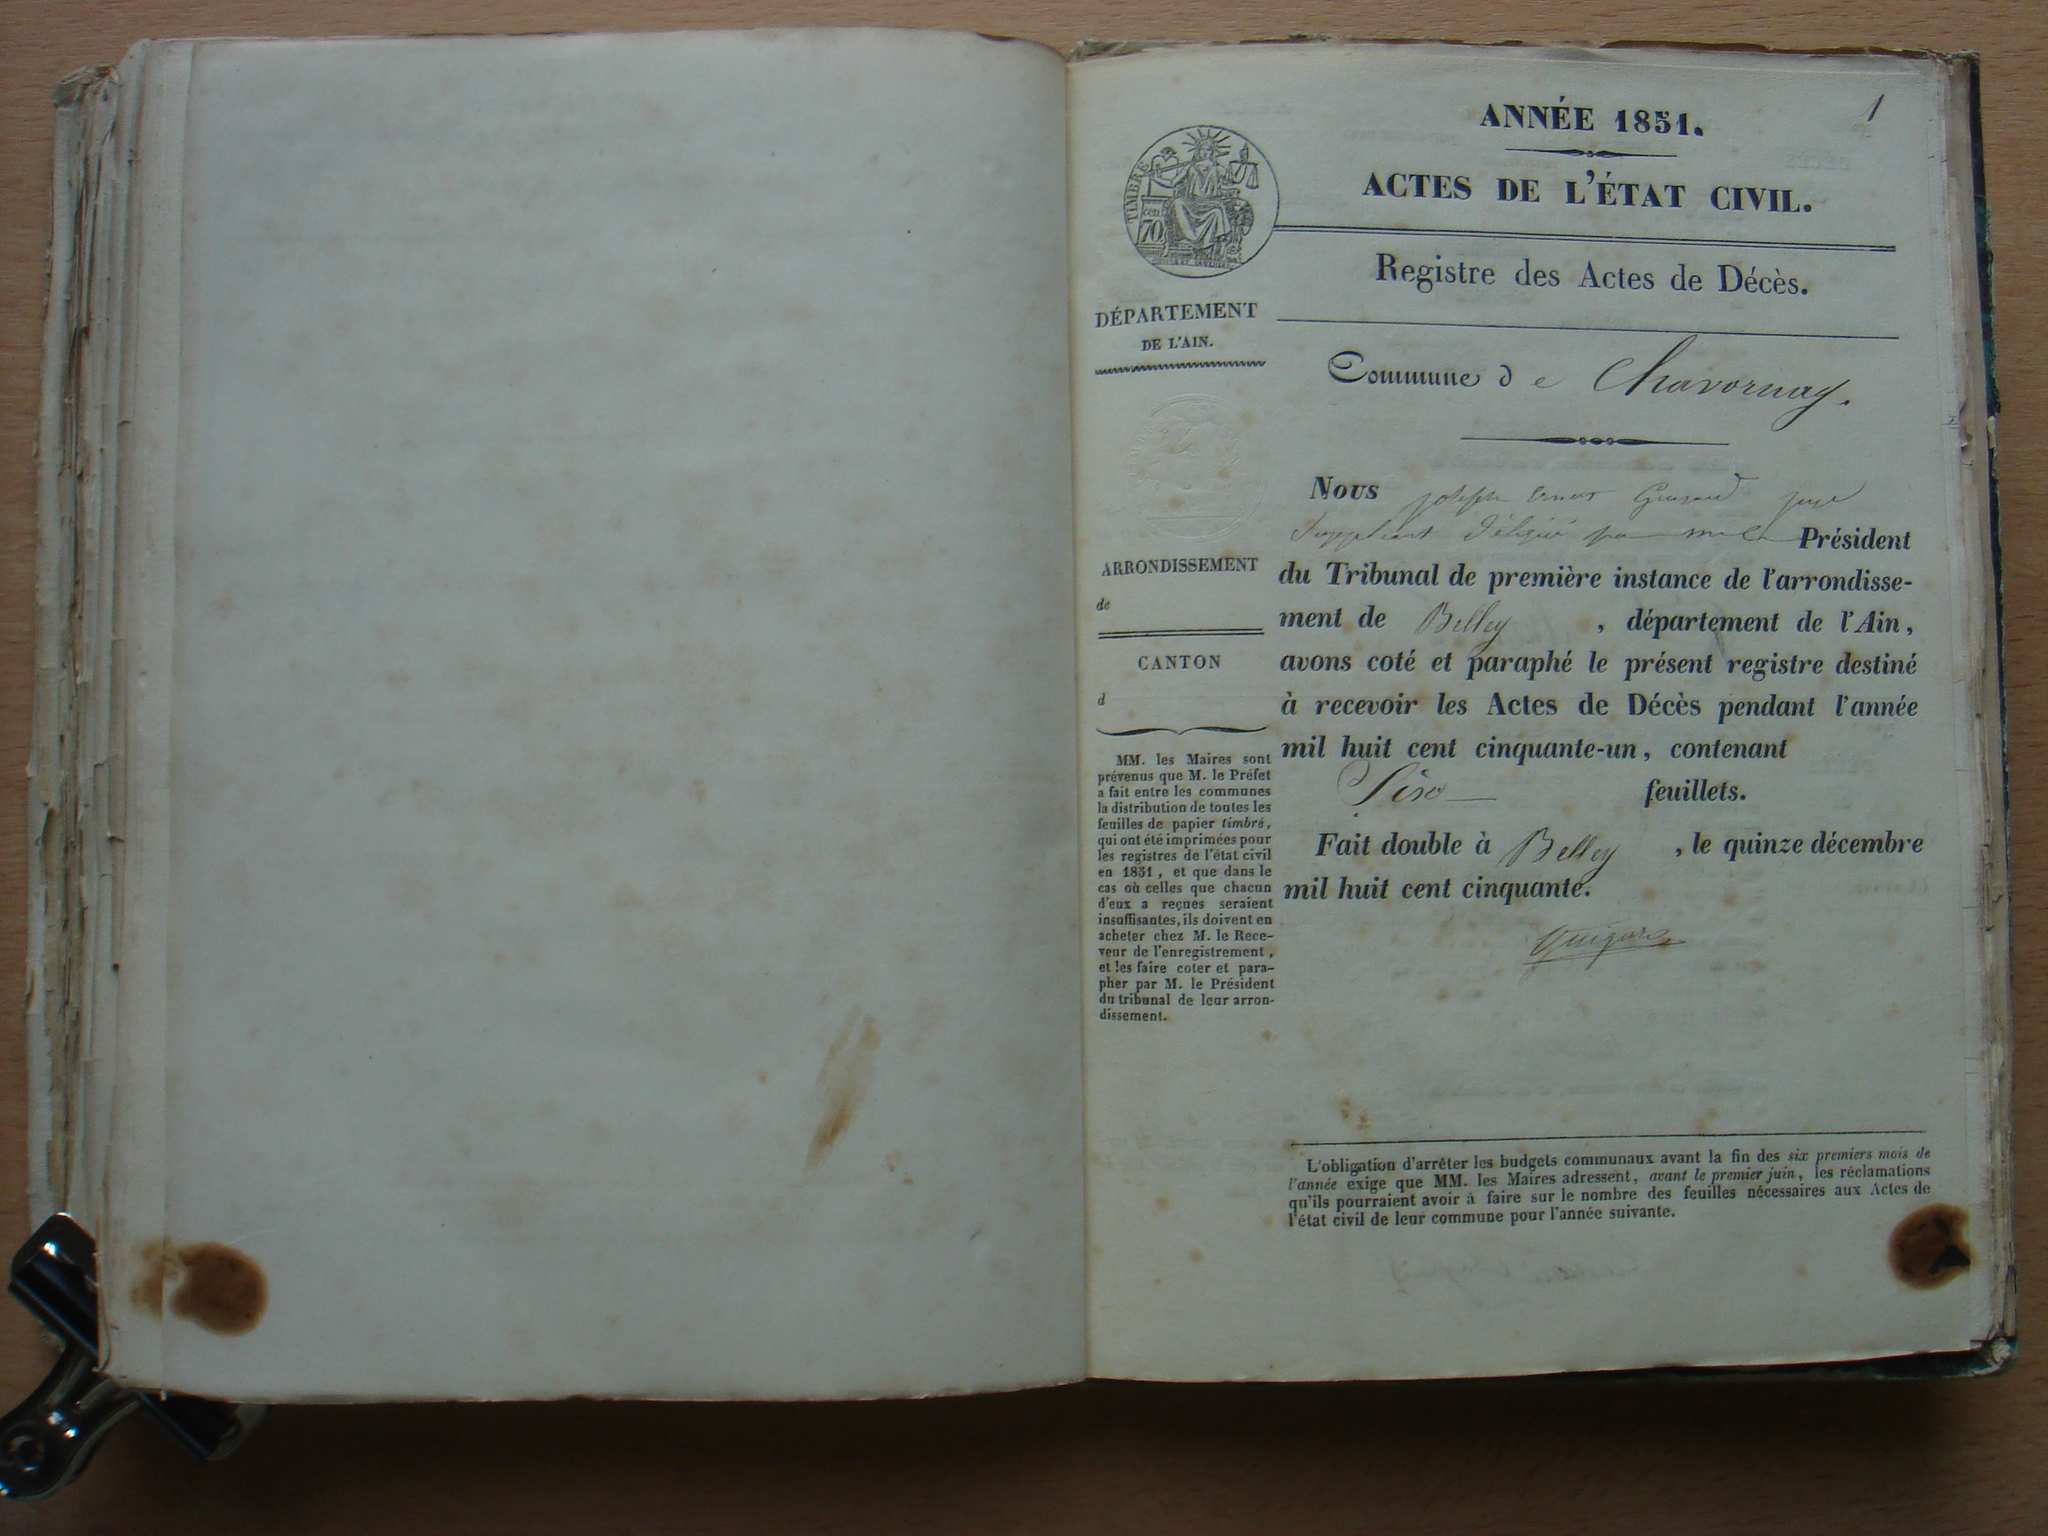 1
ANNÉE 1851.
ACTES DE L'ÉTAT CIVIL.
Registre des Actes de Décès.
TIMBRE
cen.
70
DÉPARTEMENT
DE L'AIN.
ARRONDISSEMENT
de
CANTON
d
MM. les Maires sont
prévenus que M. le Préfet
a fait entre les communes
la distribution de toutes les
feuilles de papier timbré,
qui ont été imprimées pour
les registres de l'état civil
en 1851, et que dans le
cas où celles que chacun
d'eux a reçues seraient
insuffisantes, ils doivent en
acheter chez M. le Rece-
veur de l'enregistrement,
et les faire coter et para-
pher par M. le Président
du tribunal de leur arron-
dissement.
Commune de Chavornay.
Nous joseph Ernest juge
Suppléant Délégué par Président
du Tribunal de première instance de l'arrondisse-
ment de Belley, département de l'Ain,
avons coté et paraphé le présent registre destiné
à recevoir les Actes de Décès pendant l'année
mil huit cent cinquante-un, contenant
feuillets.
Fait double à Belley, le quinze décembre
mil huit cent cinquante.
L'obligation d'arrêter les budgets communaux avant la fin des six premiers mois de
l'année exige que MM. les Maires adressent, avant le premier juin, les réclamations
qu'ils pourraient avoir à faire sur le nombre des feuilles nécessaires aux Actes de
l'état civil de leur commune pour l'année suivante.